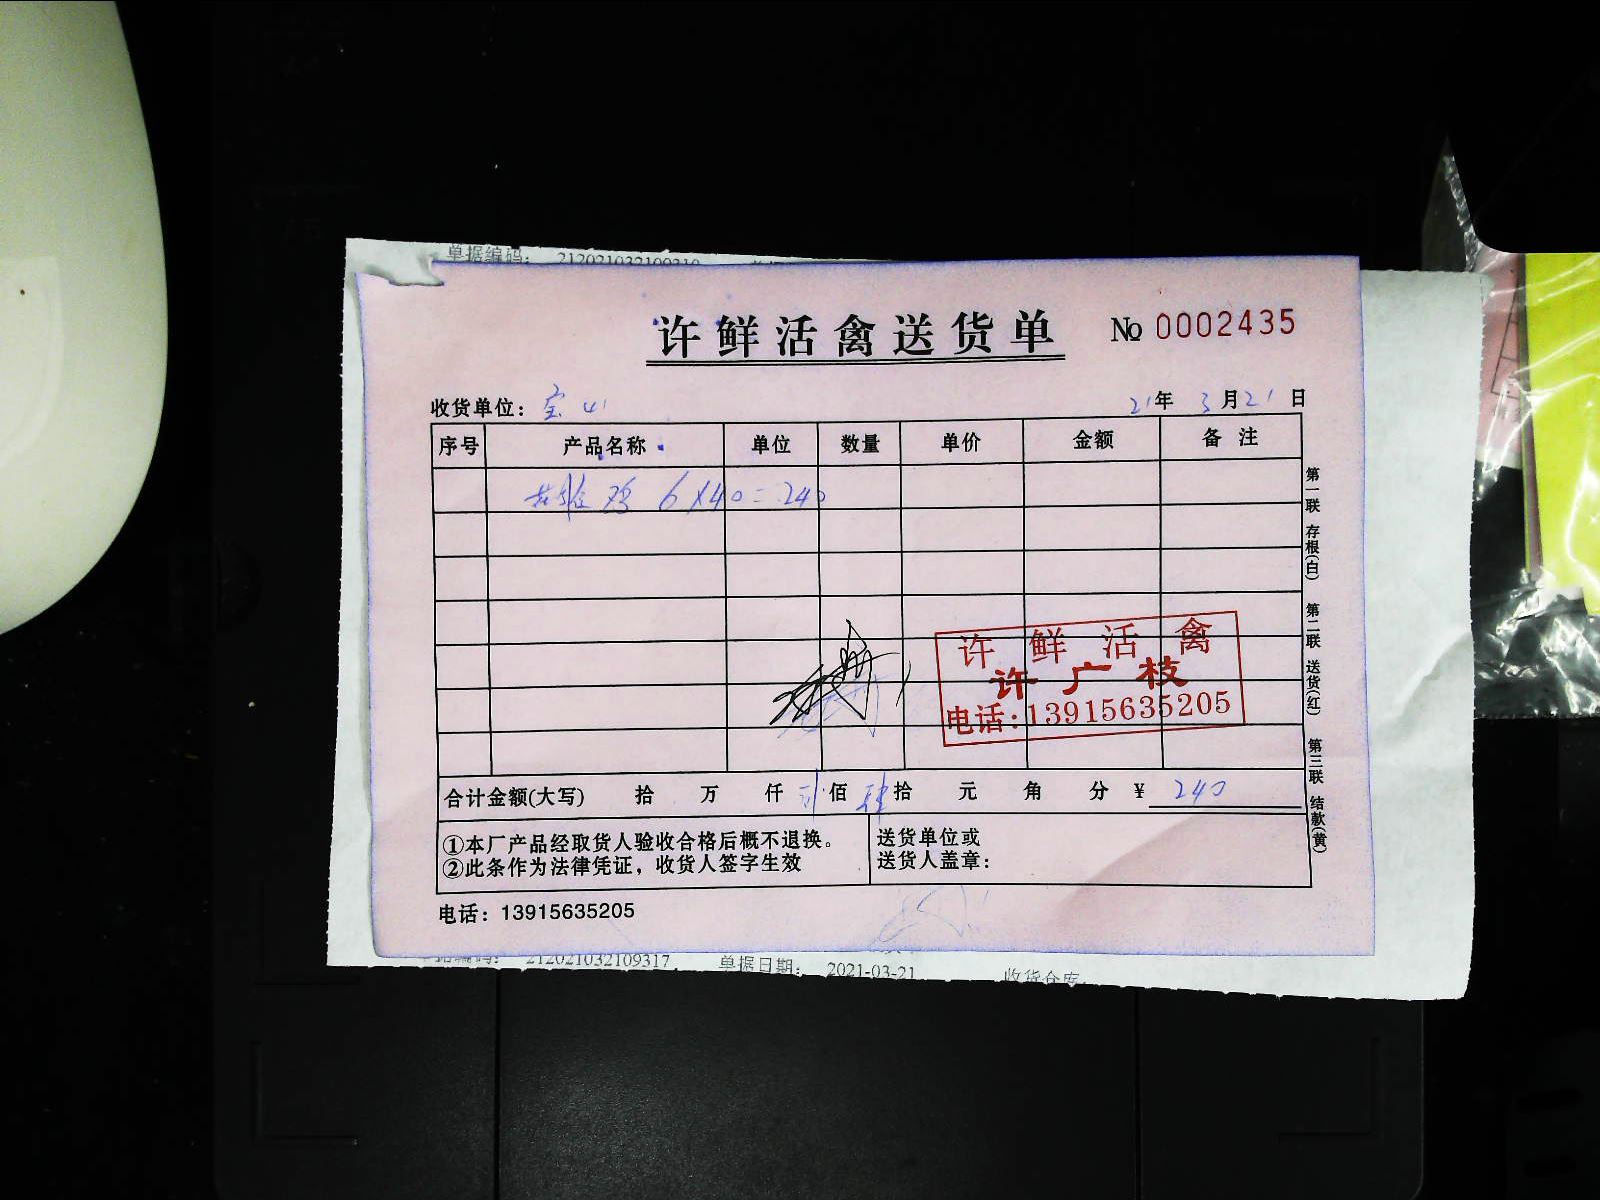 单据编码: 212021032109310
许鲜活禽送货单 № 0002435
收货单位: 宝 21年 3月21日
序号 产品名称 单位 数量 单价 金额 备注
鸡 6×40=240
许鲜活禽
许广枝
电话:13915635205
合计金额(大写) 拾 万 仟 贰佰 肆拾 元 角 分 ¥ 240
①本厂产品经取货人验收合格后概不退换。
②此条作为法律凭证，收货人签字生效
送货单位或
送货人盖章:
电话: 13915635205
第一联 存根(白) 第二联 送货(红) 第三联 结款(黄)
212021032109317 单据日期: 2021-03-21 收货仓库